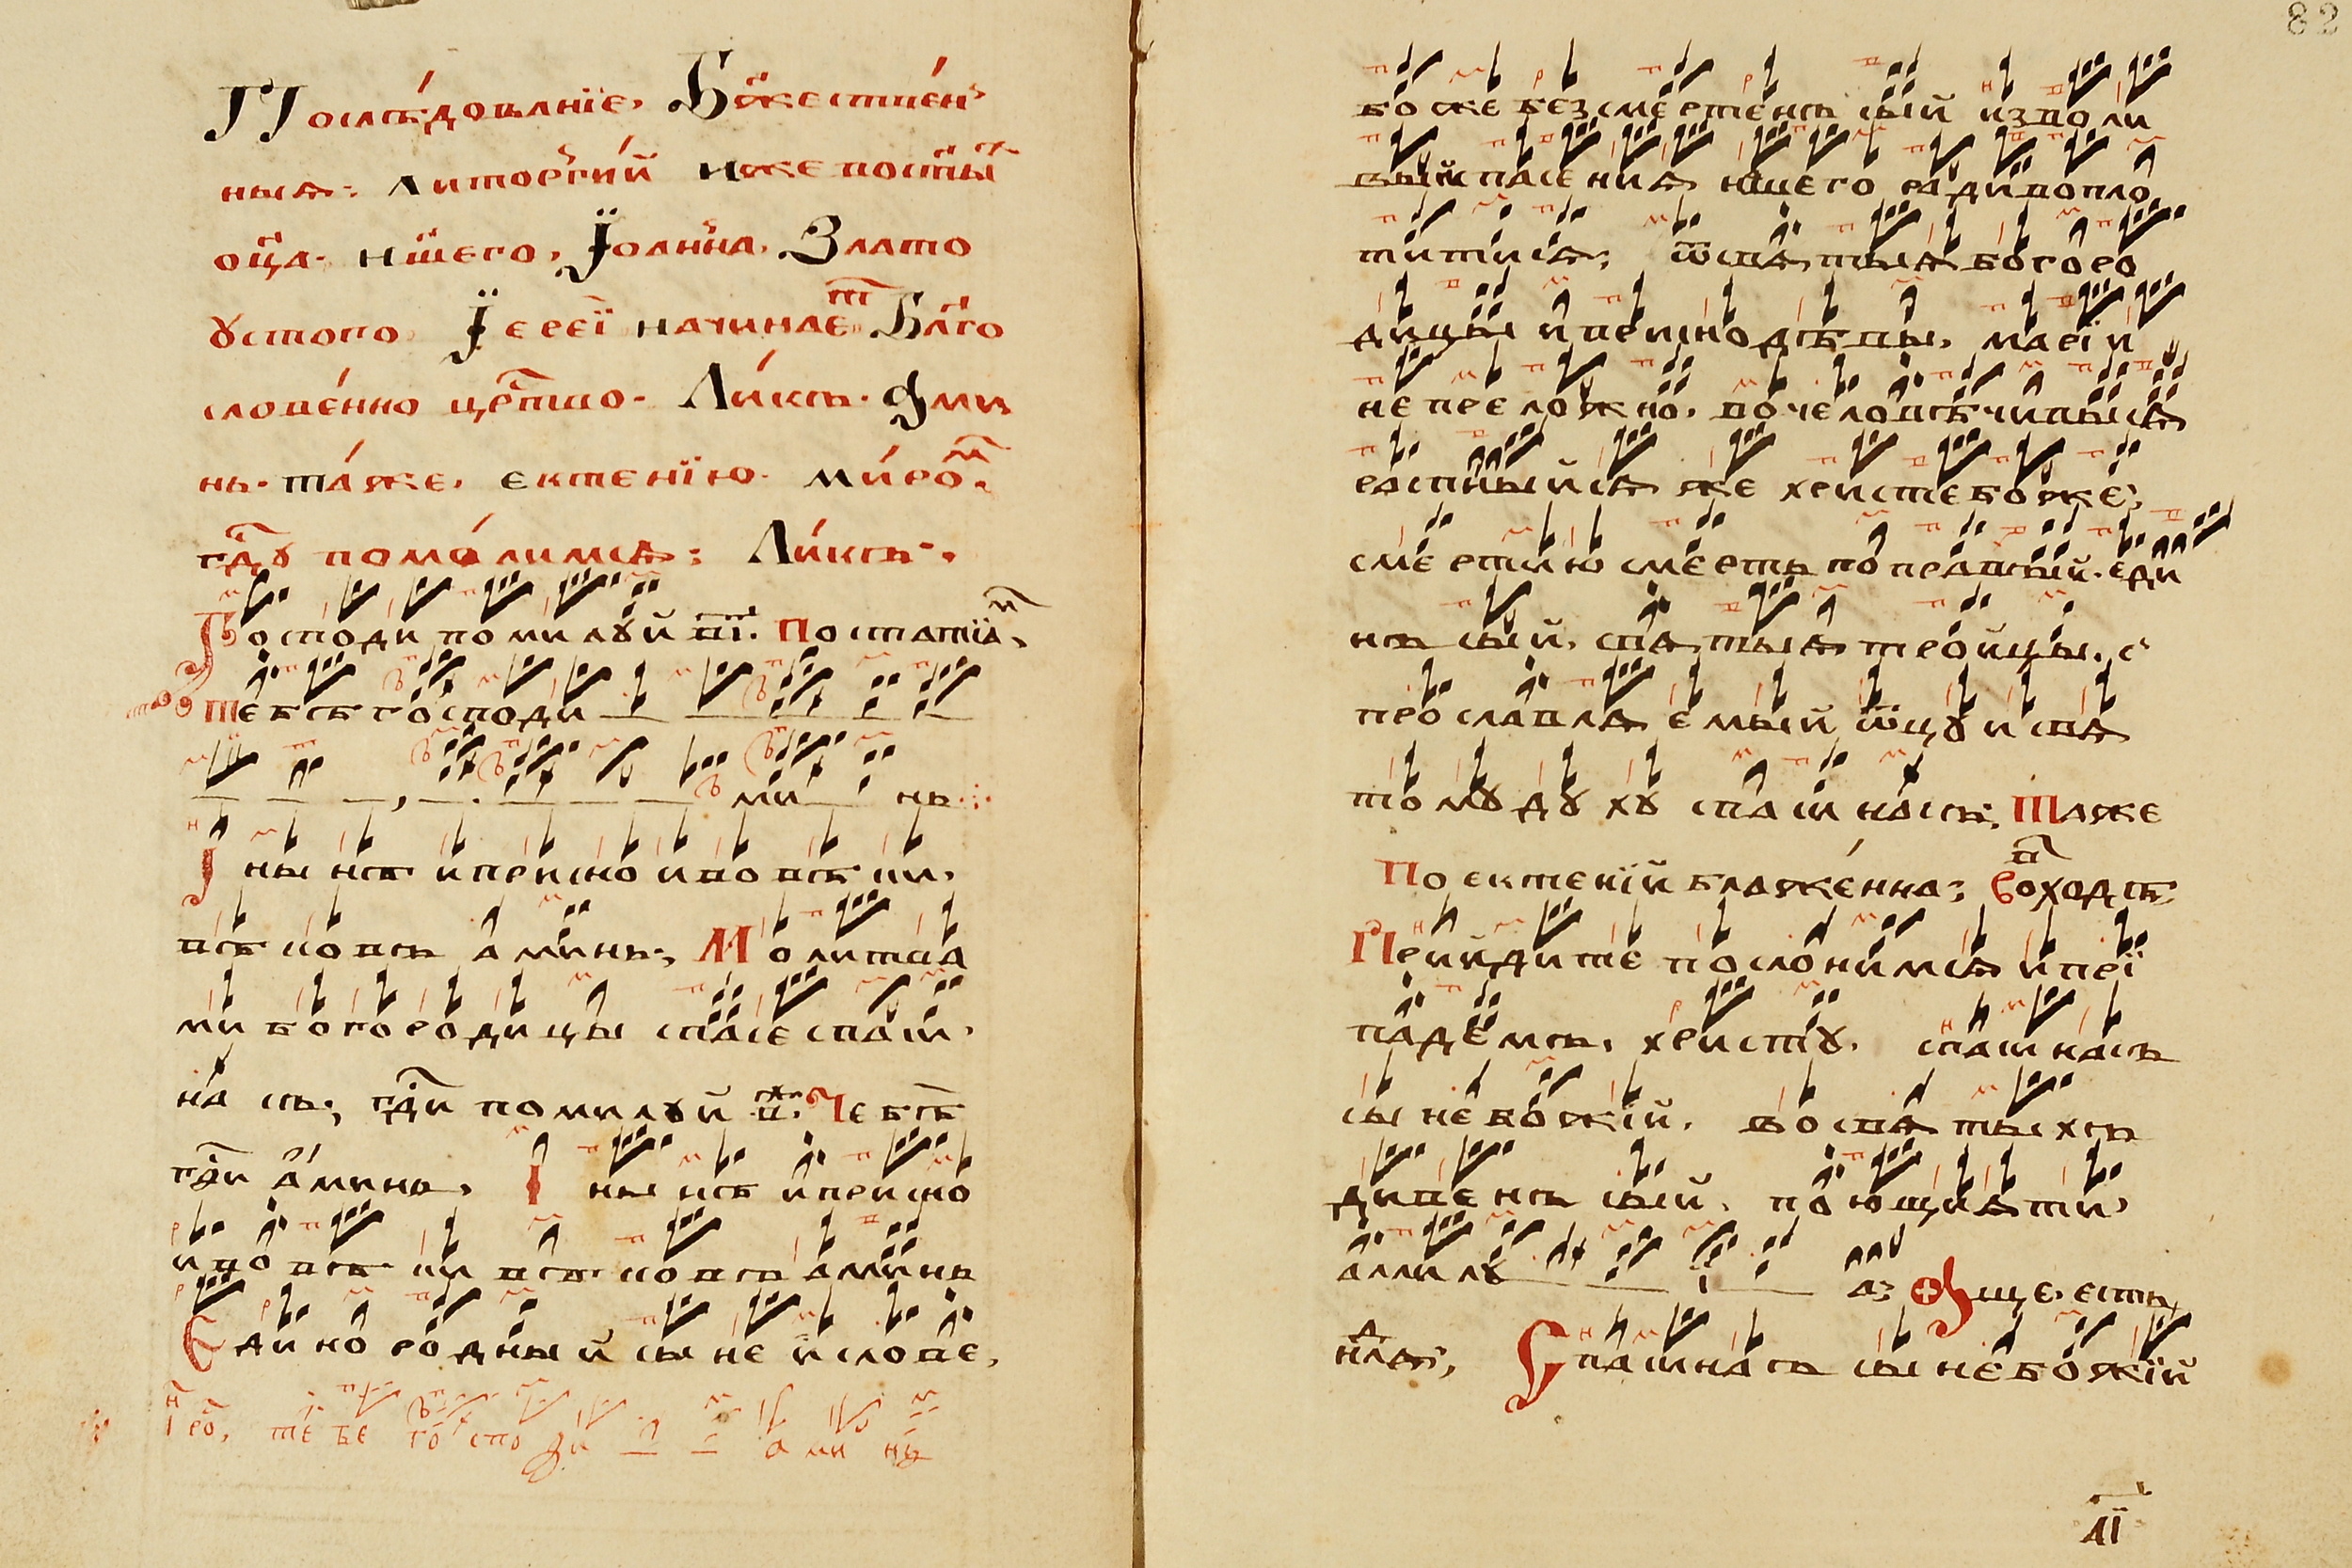 Послѣдованїе, Бж҃ественⸯ
ныѧ: литоргїй иже во ст҃ы
оц҃а нш҃его, Їоанна, Злато
ꙋстого Їерей начинаеⷮ Бл҃го
словенно црⷭ҇тво. Ликъ. Ами
нь. таже, ектенїю. миромⷨ
гдⷭ҇ꙋ помолимсѧ: Ликъ.
Господи помилꙋй в҃ї. По статїаⷨ,
тебѣ господи
ми нь
I ны нѣ и присно и во вѣ ки,
вѣ ковъ аминь; Молитва
ми богородицы спасе спаси
на съ; гдⷭ҇и помилꙋй г҃. Тебѣ
гдⷭ҇и аминь, I ны нѣ и присно
и во вѣ ки вѣ ковъ аминь
Единородный сыне и слове,
тебе господи а ми нь
82
боже безсмертенъ сый изволи
вый спасениѧ нш҃его ради вопло
титисѧ; ѿ свѧтыѧ богоро
дицы и приснодѣвы, марїи
непреложно, вочеловѣчивыйсѧ
распныйсѧ же христе боже,
смертию смерть поправый. еди
нъ сый, свѧтыѧ тройцы, с
прославлѧемый ѿцꙋ и свѧ
томꙋ дꙋхꙋ спаси насъ, Таже
По ектенїй блаженна; Воходѣ
Прийдите поклонимсѧ и прї
падемъ, христꙋ, спаси насъ
сыне божїй, во свѧтыхъ
дивенъ сый, поющиѧ ти
аллилꙋ а; Аще есть
нлⷣѧ, Спаси насъ сыне божїй
аї